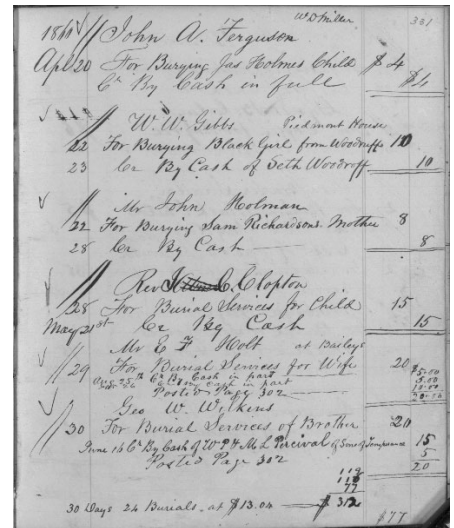 W D Miller 331
John A. Ferguson
Apl 20 For Burying Jas Holmes Child $4
Cr By Cash in full $4
W. W. Gibbs Piedmont House
22 For Burying Black Girl from Woodruffs 10
23 Cr By Cash of Seth Woodroff 10
Mr John Holman
22 For Burying Sam Richardsons Mother 8
28 Cr By Cash 8
Rev C. Clopton
28 For Burial Services for Child 15
May 21st Cr By Cash 15
Mr E F. Holt at Baileys
29 For Burial Services for Wife 20
Cr By Cash in part 5.00
cash in part 5.00
Postid Page 302 10.00
20.00
Geo W. Wilkens
30 For Burial Services of Brother 20
June 14 Cr By Cash of W P & M L Percival of Sons of Temperance 15
Postid Page 302 5
20
77
30 Days 24 Burials at $13.04 $312
$77